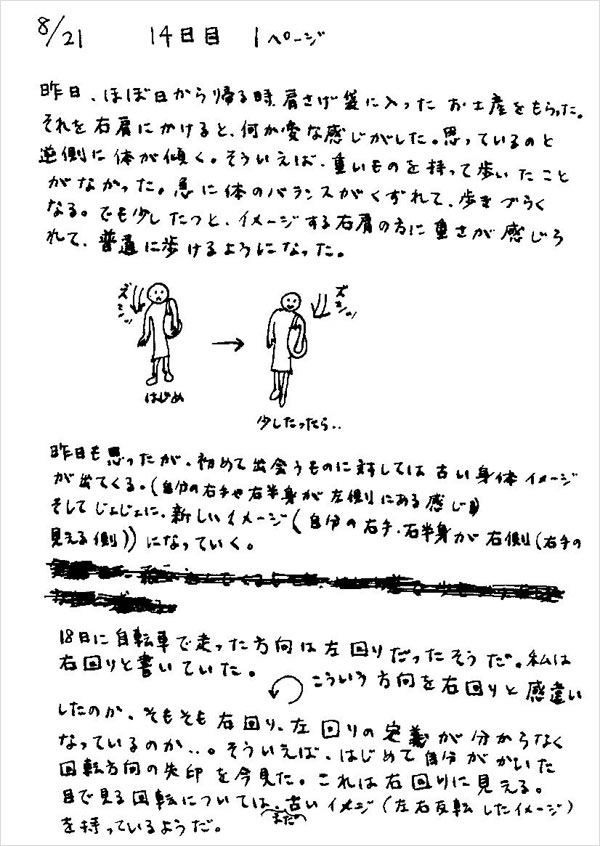 8/21 14日目 1ページ
昨日、ほぼ日から帰る時、肩さげ袋に入った お土産をもらった。
それを右肩にかけると、何か変な感じがした。思っているのと
逆側に体が傾く。そういえば、重いものを持って歩いたこと
がなかった。急に体のバランスがくずれて、歩きづらく
なる。でも少したつと、イメージする右肩の方に重さが感じら
れて、普通に歩けるようになった。
ズシッ
ズシッ
→
はじめ
少したったら..
昨日も思ったが、初めて出会うものに対しては 古い身体イメージ
が出てくる。(自分の右手や右半身が左側にある感じ)
そしてじょじょに、新しいイメージ(自分の右手、右半身が右側(右手の
見える側))になっていく。
18日に自転車で走った方向は左回りだったそうだ。私は
右回りと書いていた。
こういう方向を右回りと感違い
したのか、そもそも右回り、左回りの定義が分からなく
なっているのか..。そういえば、はじめて自分がかいた
回転方向の矢印を今見た。これは右回りに見える。
目で見る回転については、まだ古いイメジ(左右反転したイメージ)
を持っているようだ。